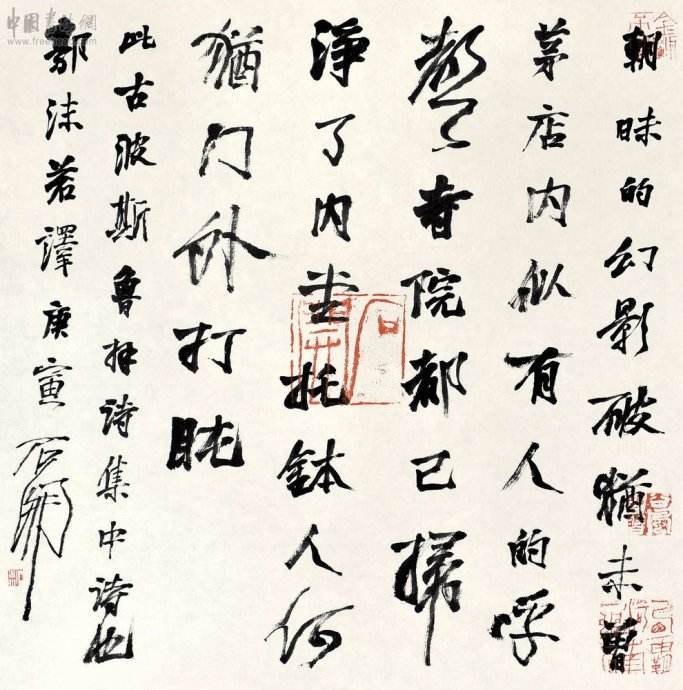 朝昧的幻影破猶未曾
茅店内似有人的呼
聲寺院都已掃
淨了内堂托鉢人何
猶门外打盹
此古波斯魯拜诗集中诗也
郭沫若譯庚寅石開